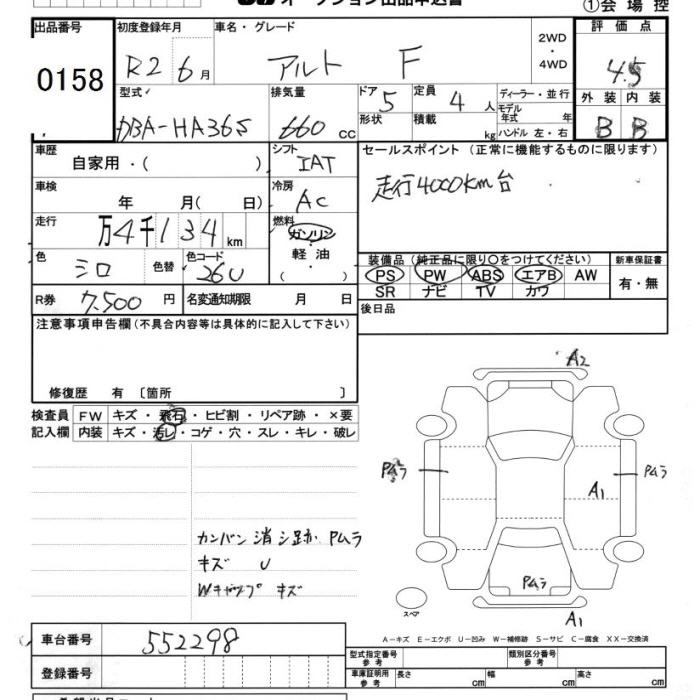 オークション出品申込書
①会場控
出品番号
0158
初度登録年月
R2 6月
車名・グレード
アルト F
2WD
・
4WD
評価点
4.5
型式
DBA-HA36S
排気量
660 CC
ドア
5
定員
4 人
形状
積載
kg
ディーラー・並行
モデル年式 年
ハンドル 左・右
外装 内装
B B
車歴
自家用・( )
シフト
IAT
セールスポイント (正常に機能するものに限ります)
走行4000km台
車検
年 月( 日)
冷房
AC
走行
万4千134km
燃料
ガソリン
・
軽油
( ・ )
色
シロ
色替
色コード
26U
装備品 (純正品に限り〇をつけてください)
PS PW ABS エアB AW
SR ナビ TV カワ
新車保証書
有・無
R券
7,500 円
名変通知期限 月 日
後日品
注意事項申告欄(不具合内容等は具体的に記入して下さい)
修復歴 有 〔箇所 〕
検査員
記入欄
FW キズ・飛石・ヒビ割・リペア跡・×要
内装 キズ・汚レ・コゲ・穴・スレ・キレ・破レ
A2
Pムラ
Pムラ
A1
Pムラ
A1
スペア
カンバン消シ跡 Pムラ
キズ U
Wキャップ キズ
A-キズ E-エクボ U-凹み W-補修跡 S-サビ C-腐食 XX-交換済
車台番号
552298
登録番号
型式指定番号
参考
類別区分番号
参考
車庫証明用
参考
長さ cm
幅 cm
高さ cm